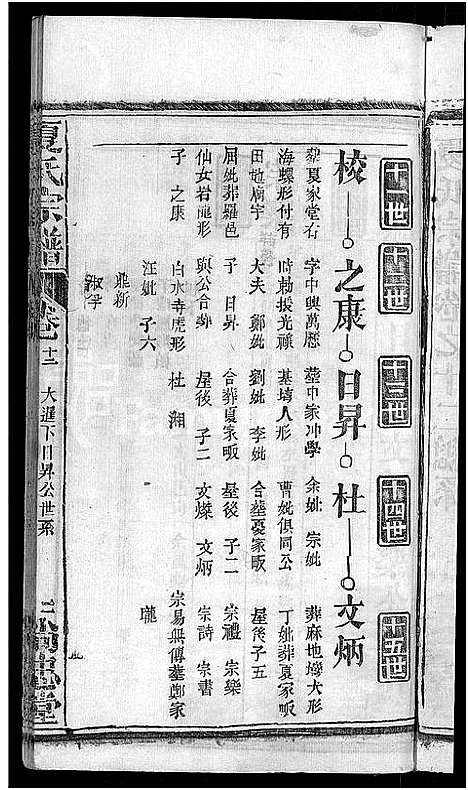 十一世 十二世 十三世 十四世 十五世
校 之康 日昇 杜 文炳
葬夏家堂右
海螺形付有
田地廟宇
屈妣葬羅邑
仙女若龍形
子 之康
字中興萬曆
時勅授光祿
大夫 鄭妣
子 日昇
與公合葬
白水寺虎形
江妣 子六
鼎新
淑孚
葬中家冲學
基塘人形
劉妣 李妣
合葬夏家畈
屋後 子二
杜 湘
余妣 宗妣
曹妣俱同公
合葬夏家畈
屋後 子二
文燦 文炳
葬麻地塝大形
丁妣葬夏家畈
屋後子五
宗禮 宗樂
宗詩 宗書
宗易無傳葬鄭家
隴
夏氏宗譜
卷之十二 大進下日昇公世系